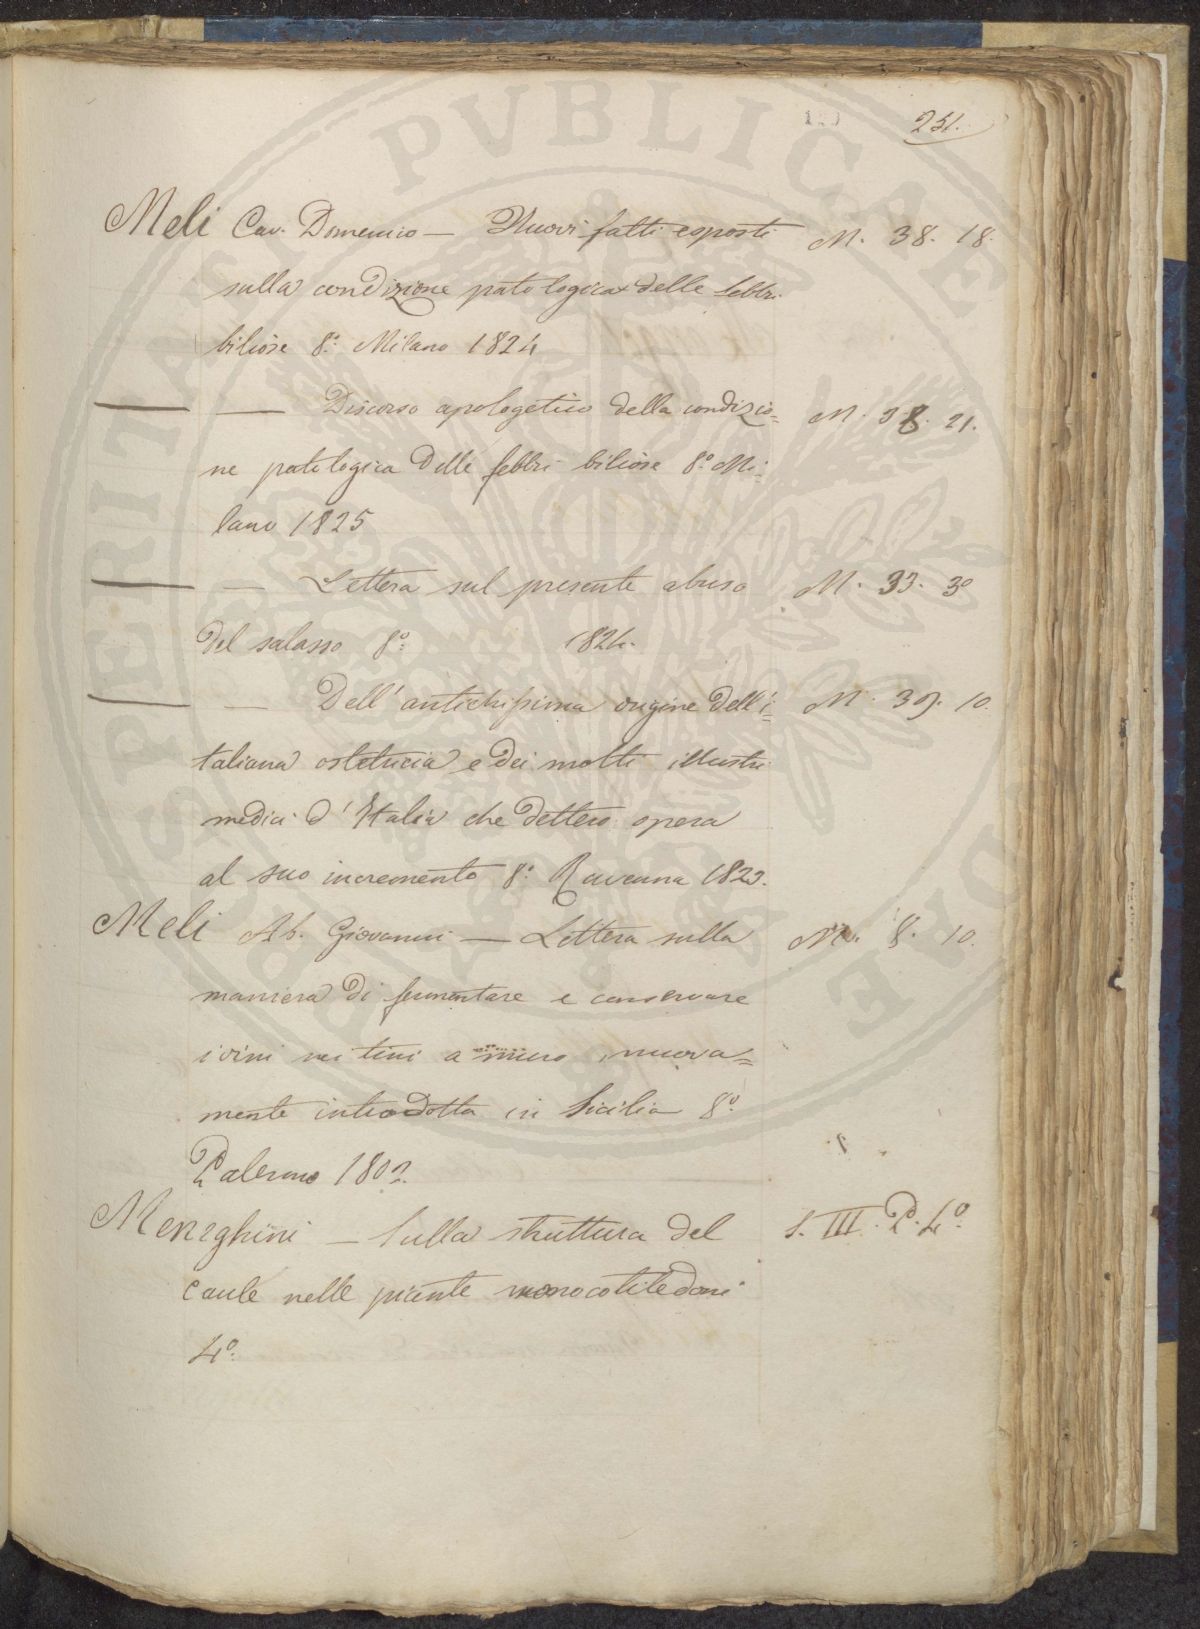 251.
Meli Cav. Domenico — Nuovi fatti esposti M. 38. 18.
sulla condizione patologica delle febbri
biliose 8.º Milano 1824
— — Discorso apologetico della condizio= M. 38. 21.
ne patologica delle febbri biliose 8.º Mi=
lano 1825
— — Lettera sul presente abuso M. 33. 30
del salasso 8.º 1824.
— — Dell' antichissima origine dell'i= M. 39. 10.
taliana ostetricia e dei molti illustri
medici d' Italia che dettero opera
al suo incremento 8.º Ravenna 1823.
Meli Ab. Giovanni — Lettera sulla M. 8. 10.
maniera di fermentare e conservare
i vini nei tini a muro nuova=
mente introdotta in Sicilia 8.º
Palermo 1802.
Meneghini — Sulla struttura del S. III. P. 4.º
Caule nelle piante monocotiledoni
4.º